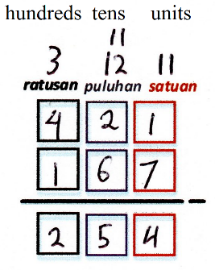 hundreds tens units
11
3 12 11
ratusan puluhan satuan
4 2 1
1 6 7
-
2 5 4